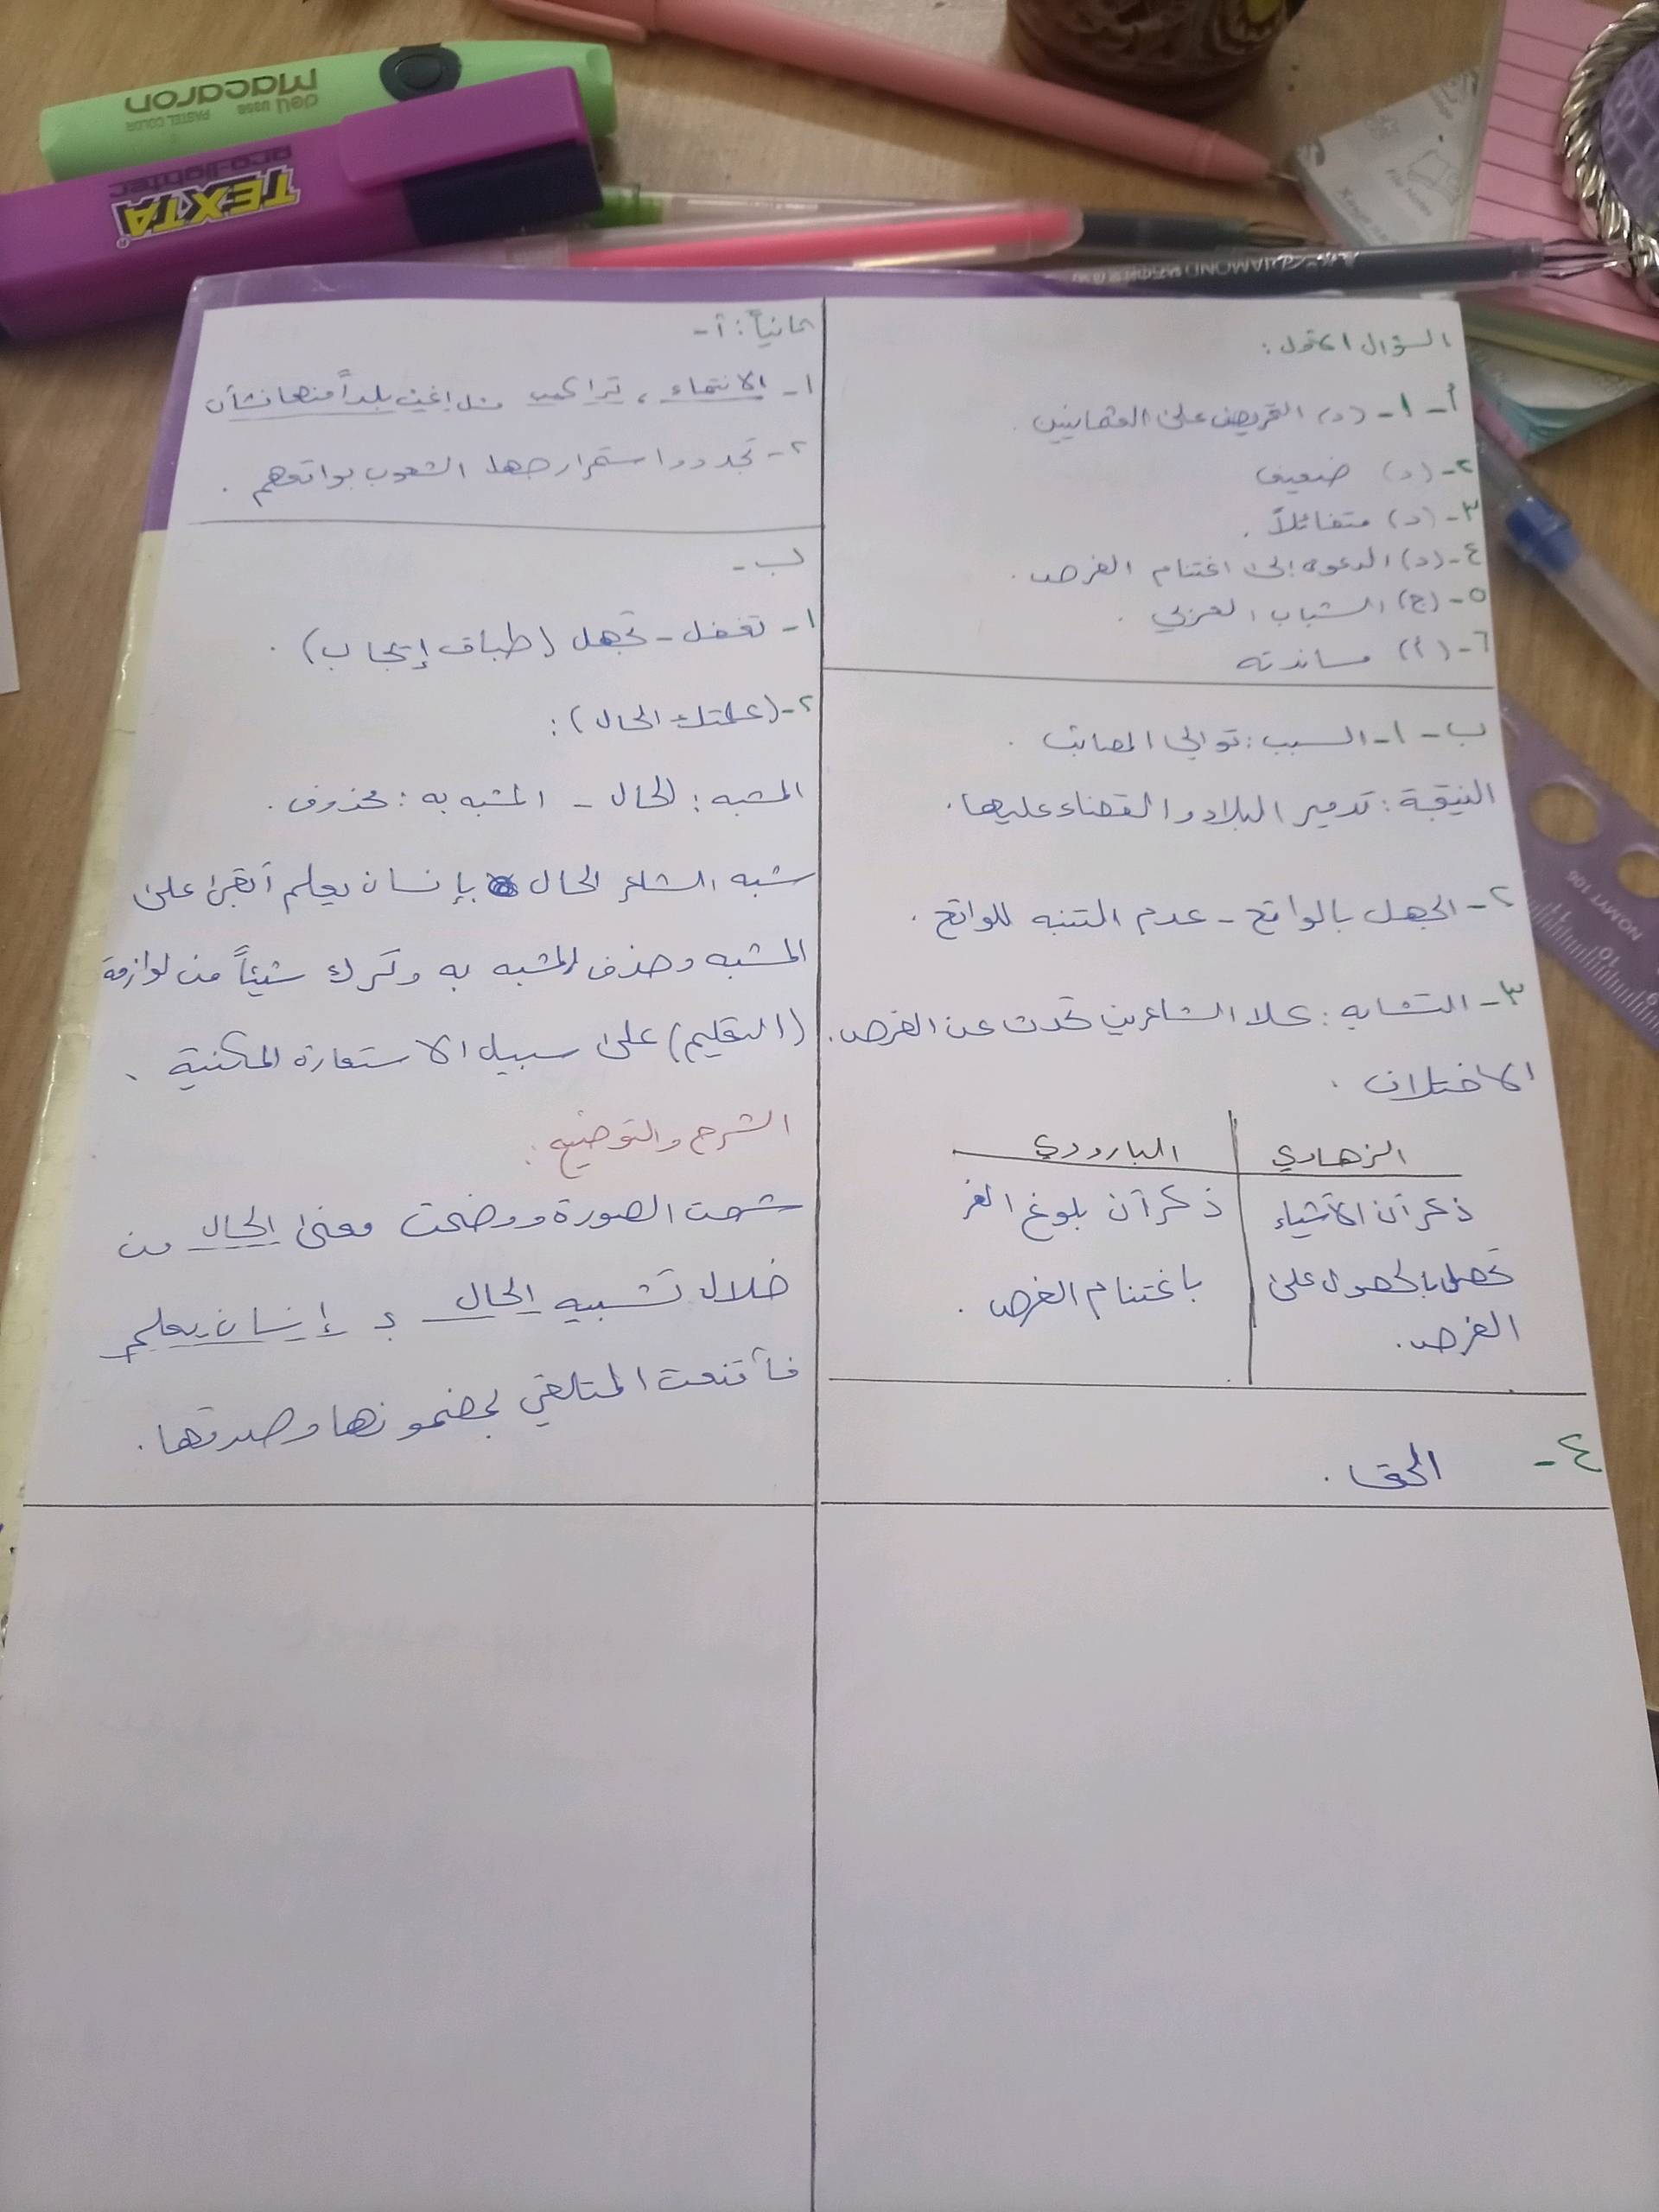 deli U356
macaron
PASTEL COLOR
TEXTA
pro-lighter
DIAMOND
NOMYT 106
10
السؤال الأول:
أ- ١- (د) التحريض على العثمانيين.
٢- (د) ضعيف
٣- (د) متفائلاً.
٤- (د) الدعوة إلى اغتنام الفرص.
٥- (ج) الشباب العربي.
٦- (أ) مساندته
ب- ١- السبب: توالي المصائب.
النتيجة: تدمير البلاد والقضاء عليها.
٢- الجهل بالواقع - عدم التنبه للواقع.
٣- التشابه: كلا الشاعرين تحدث عن الفرص.
الاختلاف.
الزهاوي | البارودي
ذكر أن الأشياء | ذكر أن بلوغ الغر
تحصل بالحصول على | باغتنام الفرص.
الفرص.
٤- الحق.
ثانياً: أ-
١- الانتماء، تراكيب مثل إغث بلداً منها نشأت
٢- تجدد واستمرار جهل الشعوب بواقعهم.
ب-
١- تغفل - تجهل (طباق إيجاب).
٢- (علمتك الحال):
المشبه: الحال - المشبه به: محذوف.
شبه الشاعر الحال بإنسان يعلم أبقى على
المشبه وحذف المشبه به وترك شيئاً من لوازمة
(التعليم) على سبيل الاستعارة المكنية.
الشرح والتوضيح:
شرحت الصورة ووضحت معنى الحال من
خلال تشبيه الحال بـ إنسان يعلم
فأقنعت المتلقي بمضمونها وصدقها.